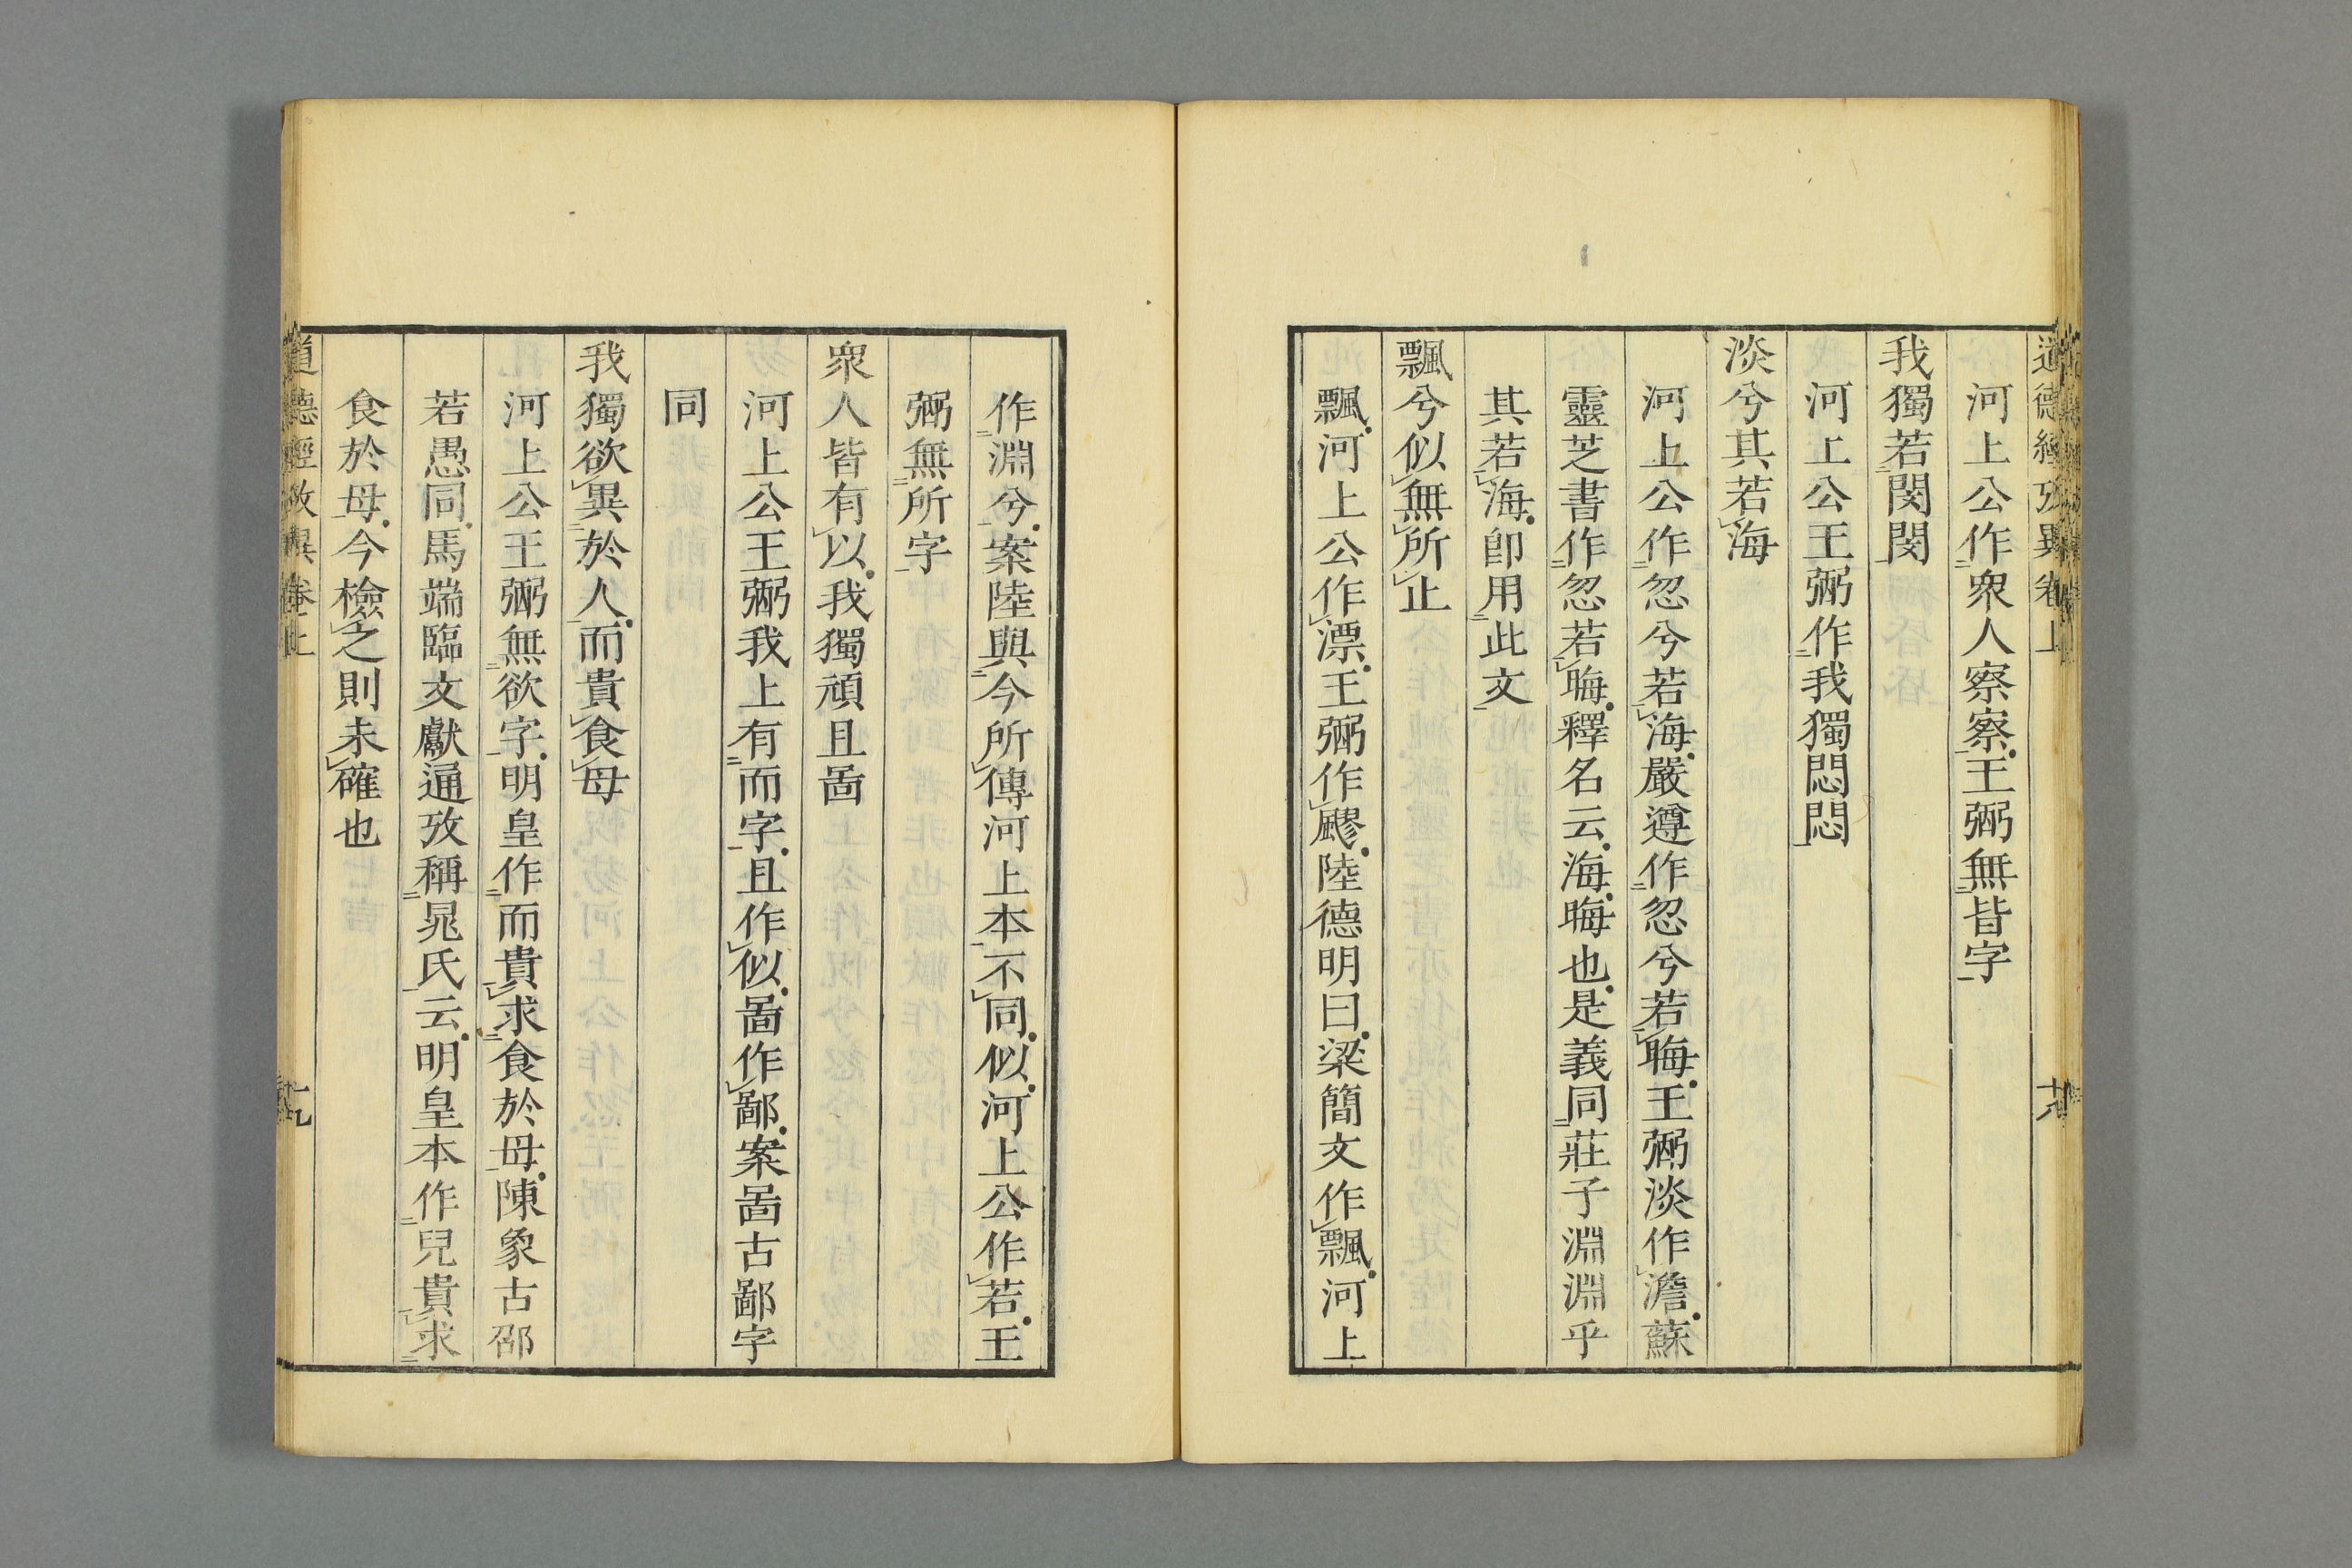 道德經攷異卷上 十八
河上公作衆人察察王弼無皆字
我獨若閔閔
河上公王弼作我獨悶悶
淡兮其若海
河上公作忽兮若海嚴遵作忽兮若晦王弼淡作澹蘇
靈芝書作忽若晦釋名云海晦也是義同莊子淵淵乎
其若海卽用此文
飄兮似無所止
飄河上公作漂王弼作飂陸德明曰梁簡文作飄河上
作淵兮案陸與今所傳河上本不同似河上公作若王
弼無所字
衆人皆有以我獨頑且啚
河上公王弼我上有而字且作似啚作鄙案啚古鄙字
同
我獨欲異於人而貴食母
河上公王弼無欲字明皇作而貴求食於母陳象古邵
若愚同馬端臨文獻通攷稱晁氏云明皇本作兒貴求
食於母今檢之則未確也
道德經攷異卷上 十九